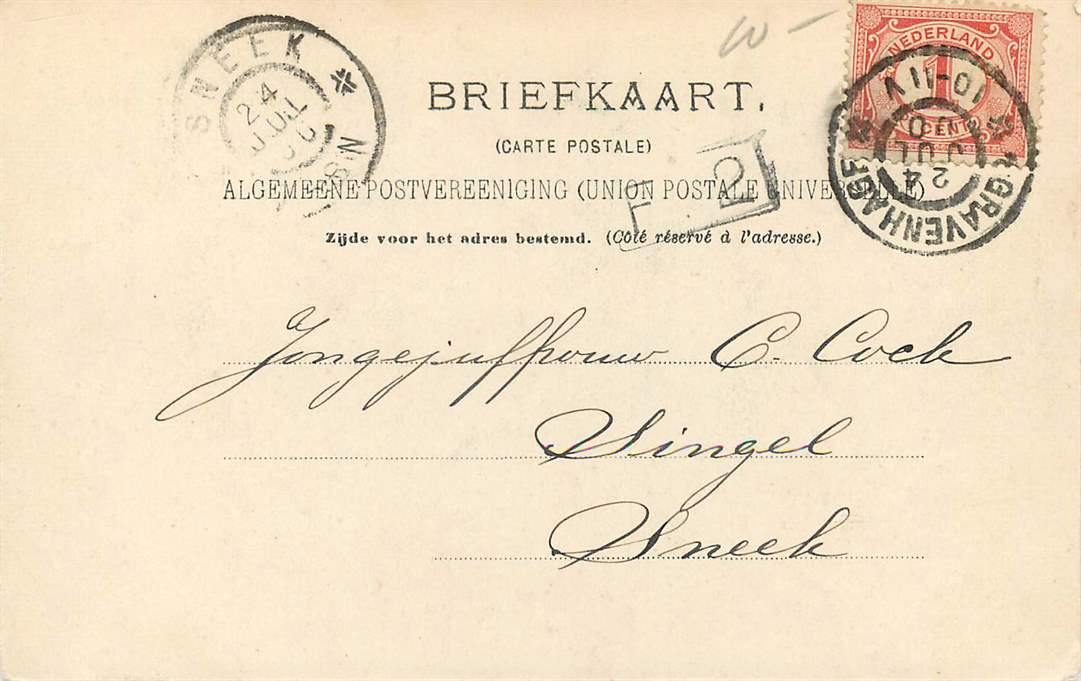 W-
SNEEK
24
JUL
NEDERLAND
1
CENT
'S-GRAVENHAGE
10-11V
24
JUL
BRIEFKAART.
(CARTE POSTALE)
ALGEMEENE POSTVEREENIGING (UNION POSTALE UNIVERSELLE)
Zijde voor het adres bestemd. (Côté réservé à l'adresse.)
Jongejuffrouw C. Cock
Singel
Sneek